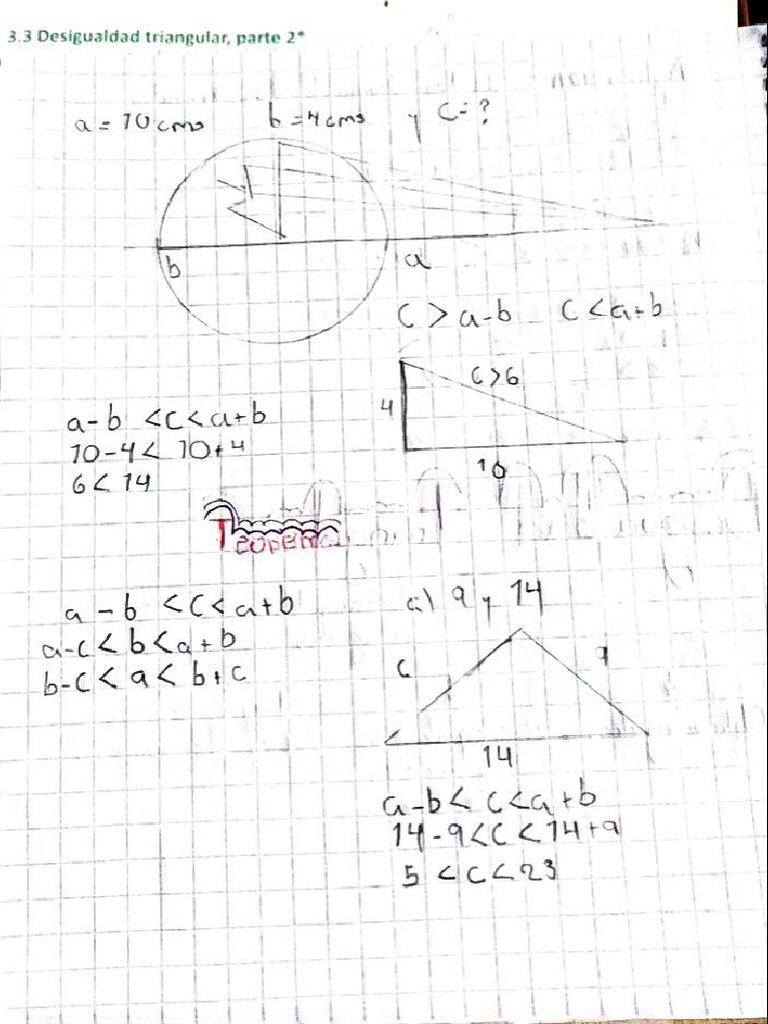 3.3 Desigualdad triangular, parte 2*
a = 10 cms b = 4 cms y C = ?
b
a
C > a-b C < a+b
4
C > 6
10
a-b < c < a+b
10-4 < 10+4
6 < 14
Teorema
a - b < c < a+b
a-c < b < a+b
b-c < a < b+c
a) 9 y 14
c
9
14
a-b < c < a+b
14-9 < c < 14+9
5 < c < 23